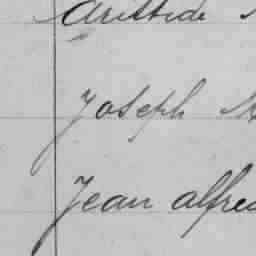 Aristide
Joseph
Jean alfred